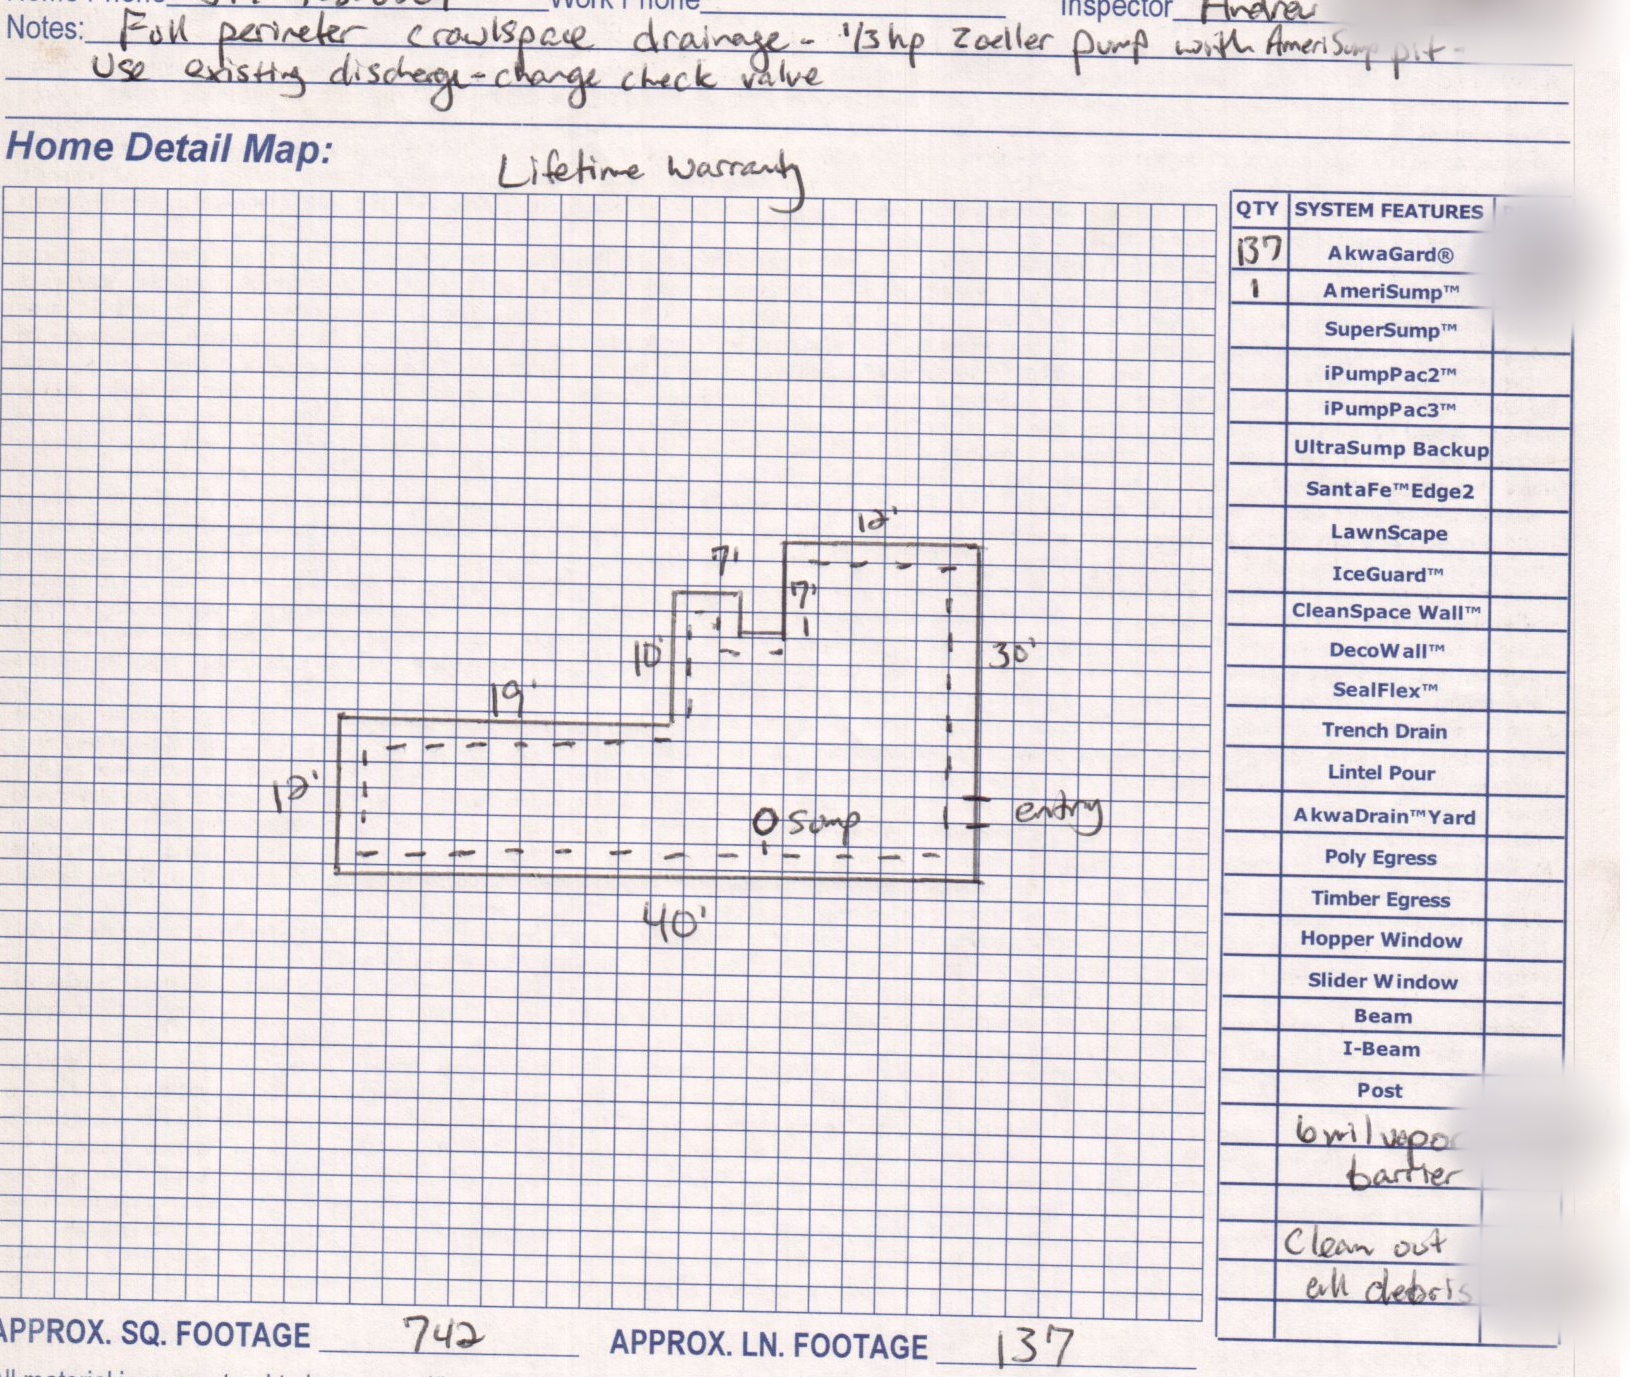 Work Phone
Inspector Andrew
Notes: Full perimeter crawlspace drainage - 1/3 hp Zoeller pump with AmeriSump pit -
Use existing discharge - change check valve
Home Detail Map:
Lifetime Warranty
QTY SYSTEM FEATURES
137 AkwaGard®
1 AmeriSump™
SuperSump™
iPumpPac2™
iPumpPac3™
UltraSump Backup
SantaFe™Edge2
LawnScape
IceGuard™
CleanSpace Wall™
DecoWall™
SealFlex™
Trench Drain
Lintel Pour
AkwaDrain™Yard
Poly Egress
Timber Egress
Hopper Window
Slider Window
Beam
I-Beam
Post
6 mil vapor
barrier
Clean out
all debris
12'
7'
7'
10'
30'
19'
12'
sump
entry
40'
APPROX. SQ. FOOTAGE 742 APPROX. LN. FOOTAGE 137